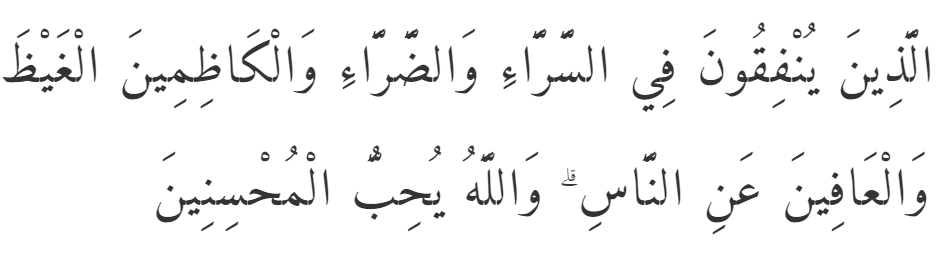 الَّذِينَ يُنْفِقُونَ فِي السَّرَّاءِ وَالضَّرَّاءِ وَالْكَاظِمِينَ الْغَيْظَ
وَالْعَافِينَ عَنِ النَّاسِ ۗ وَاللَّهُ يُحِبُّ الْمُحْسِنِينَ